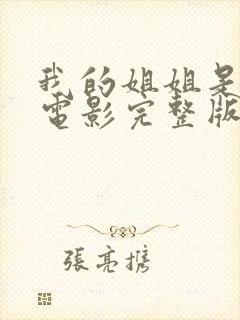 我的姐姐是
電影完整版
張亮携